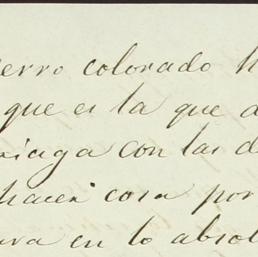 erro colorado h
que es la que d
niaga con las d
hacen cosa por
ura en lo absol